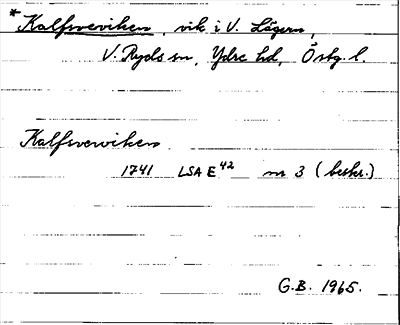 *Kalfsveviken, vik i V. Lägern,
V. Ryds sn, Ydre hd, Östg. l.
Kalfsvewiken
1741 LSA E42 nr 3 (beskr.)
G.B. 1965.